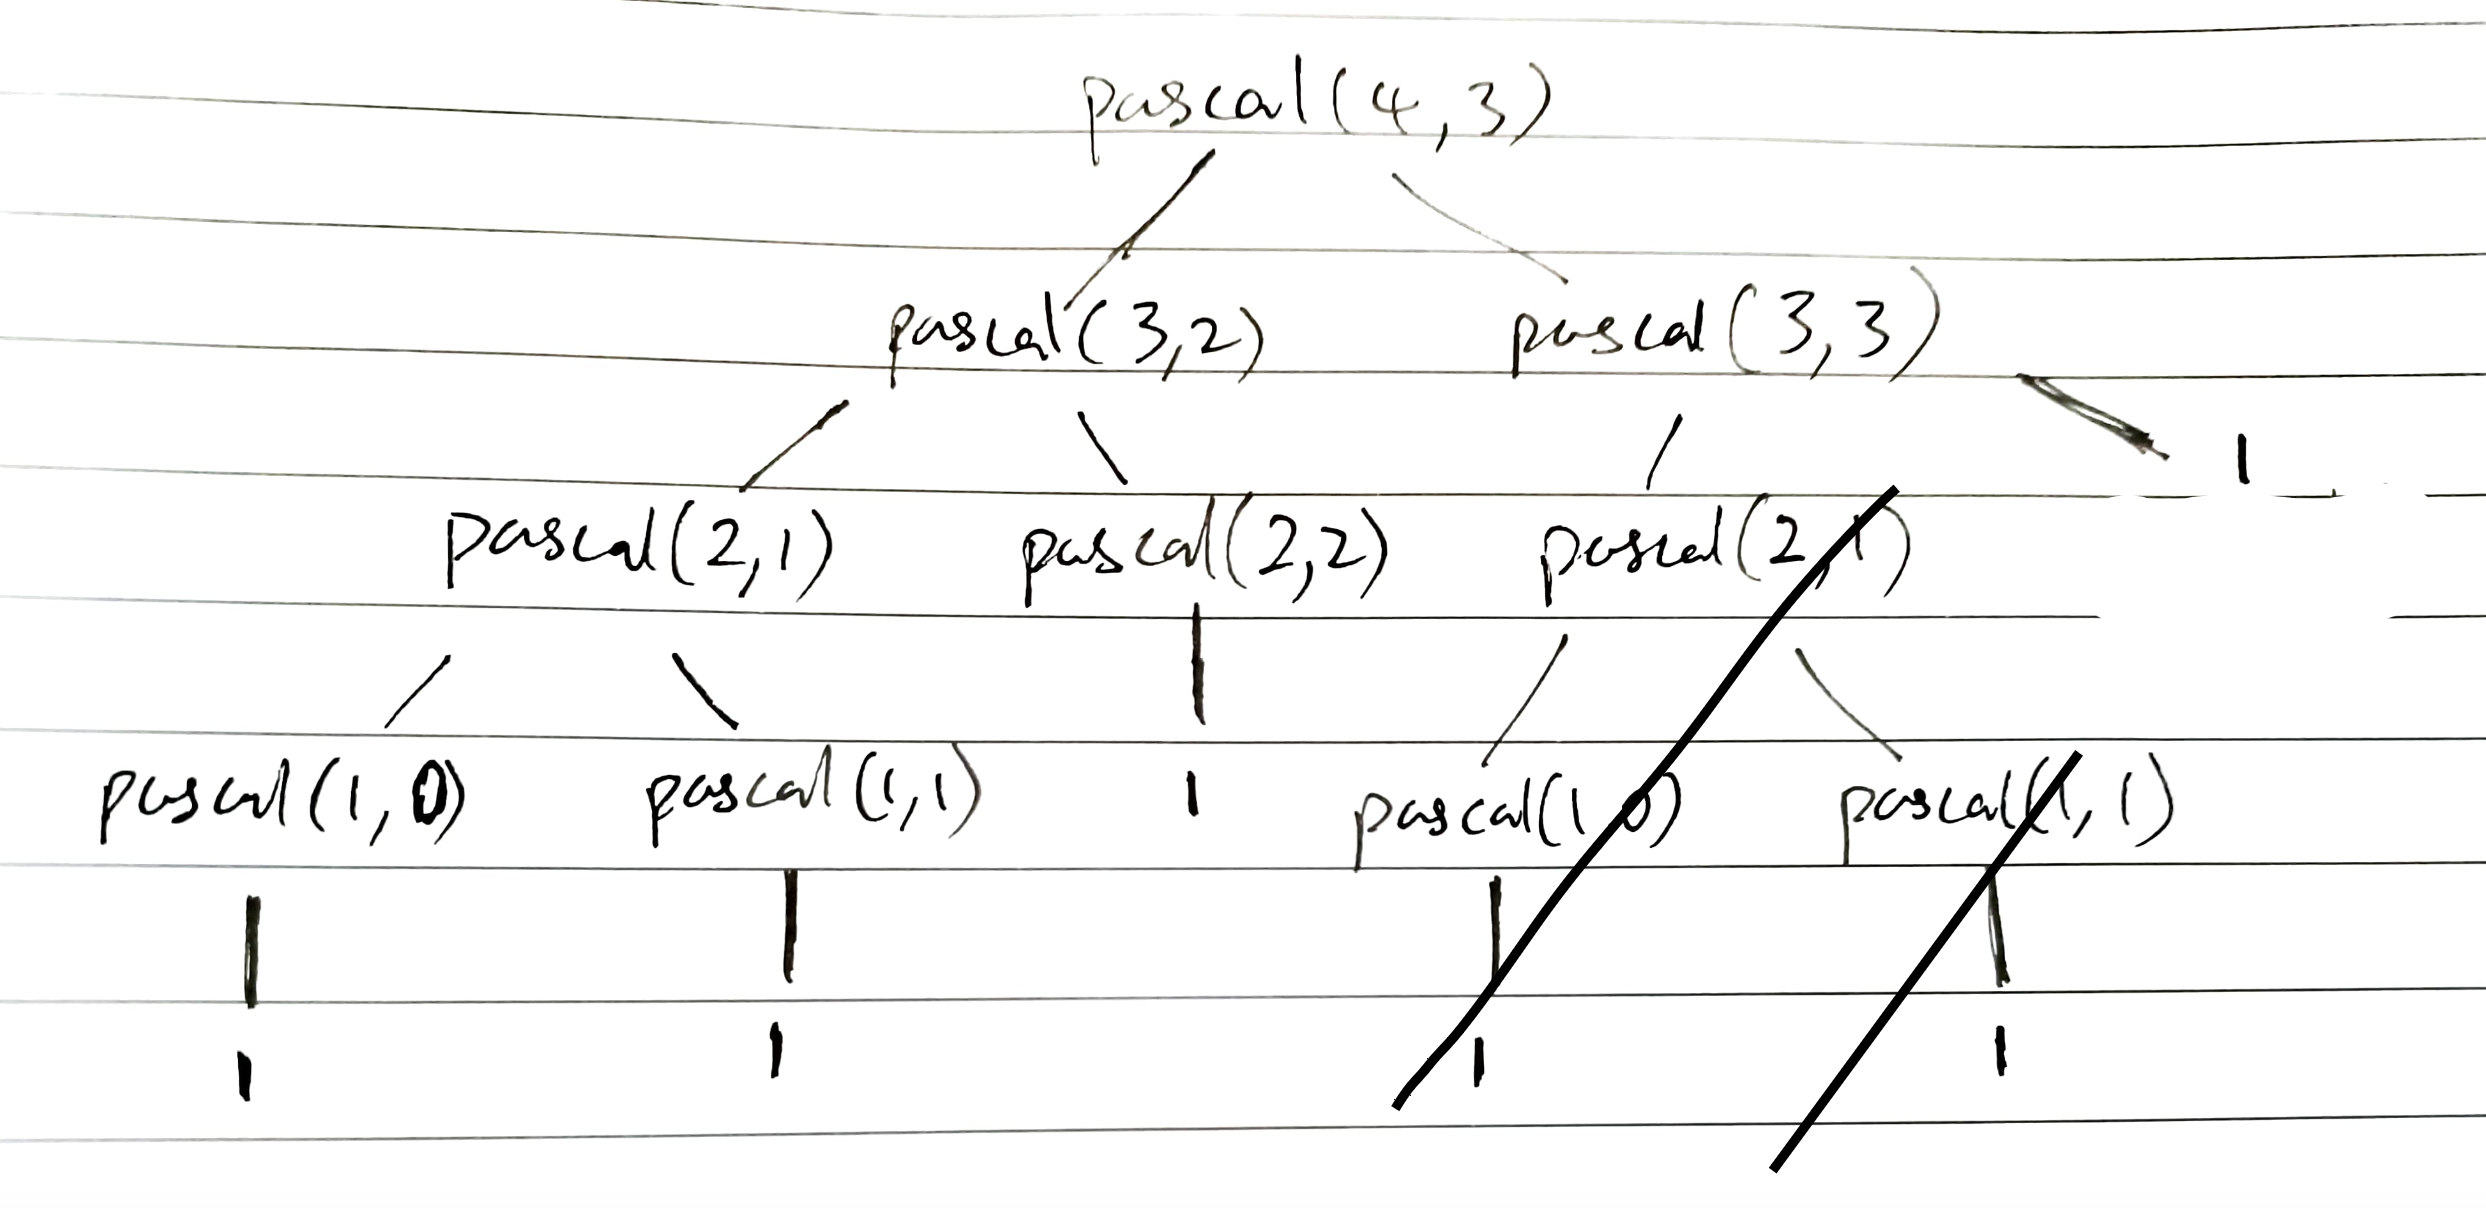 pascal(4,3)
pascal(3,2) pascal(3,3)
1
pascal(2,1) pascal(2,2) pascal(2,1)
pascal(1,0) pascal(1,1) 1 pascal(1,0) pascal(1,1)
1 1 1 1